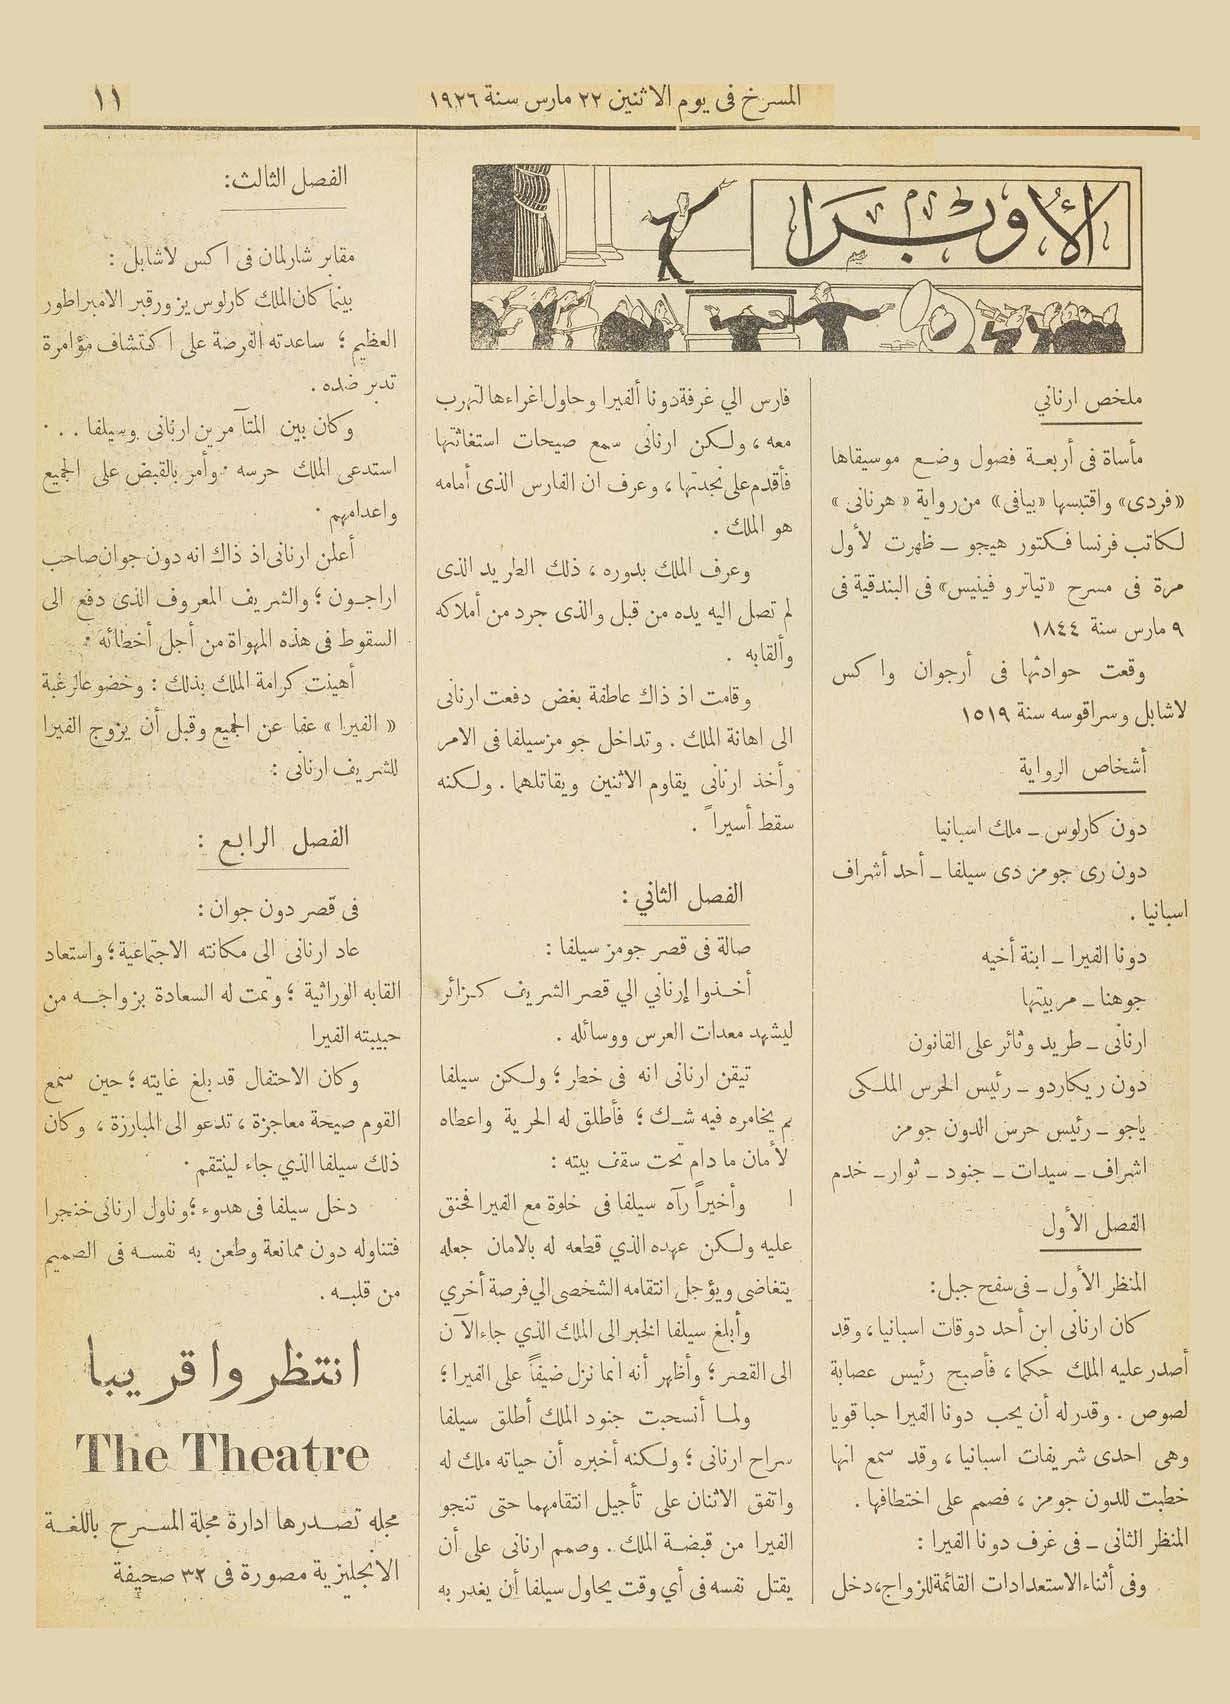 المسرح فى يوم الاثنين ٢٢ مارس سنة ١٩٢٦
١١
الأوبرا
ملخص ارناني
مأساة فى أربعة فصول وضع موسيقاها
«فردى» واقتبسها «بيافى» من رواية «هرنانى»
لكاتب فرنسا فكتور هيجو ــ ظهرت لأول
مرة فى مسرح «تياترو فينيس» فى البندقية فى
٩ مارس سنة ١٨٤٤
وقعت حوادثها فى أرجوان واكس
لاشابل وسراقوسه سنة ١٥١٩
أشخاص الرواية
دون كارلوس ــ ملك اسبانيا
دون رى جومز دى سيلفا ــ أحد أشراف
اسبانيا .
دونا الفيرا ــ ابنة أخيه
جوهنا ــ مربيتها
ارنانى ــ طريد وثائر على القانون
دون ريكاردو ــ رئيس الحرس الملكى
ياجو ــ رئيس حرس الدون جومز
اشراف ــ سيدات ــ جنود ــ ثوار ــ خدم
الفصل الأول
المنظر الأول ــ فى سفح جبل:
كان ارنانى ابن أحد دوقات اسبانيا، وقد
أصدر عليه الملك حكما، فأصبح رئيس عصابة
لصوص . وقدر له أن يحب دونا الفيرا حبا قويا
وهى احدى شريفات اسبانيا، وقد سمع انها
خطبت للدون جومز، فصمم على اختطافها .
المنظر الثانى ــ فى غرف دونا الفيرا :
وفى أثناء الاستعدادات القائمة للزواج، دخل
فارس الي غرفة دونا ألفيرا وحاول اغراءها لتهرب
معه، ولكن ارنانى سمع صيحات استغاثتها
فأقدم على نجدتها، وعرف ان الفارس الذى أمامه
هو الملك .
وعرف الملك بدوره، ذلك الطريد الذى
لم تصل اليه يده من قبل والذى جرد من أملاكه
وألقابه .
وقامت اذ ذاك عاطفة بغض دفعت ارنانى
الى اهانة الملك . وتداخل جومز سيلفا فى الامر
وأخذ ارنانى يقاوم الاثنين ويقاتلهما . ولكنه
سقط أسيراً .
الفصل الثاني :
صالة فى قصر جومز سيلفا :
أخذوا إرناني الي قصر الشريف كزائر
ليشهد معدات العرس ووسائله .
تيقن ارنانى انه فى خطر؛ ولكن سيلفا
لم يخامره فيه شك؛ فأطلق له الحرية واعطاه
لأمان ما دام تحت سقف بيته :
ا وأخيراً رآه سيلفا فى خلوة مع الفيرا فحنق
عليه ولكن عهده الذي قطعه له بالامان جعله
يتغاضى ويؤجل انتقامه الشخصى الي فرصة أخري
وأبلغ سيلفا الخبر الى الملك الذي جاء الآن
الى القصر؛ وأظهر أنه انما نزل ضيفاً على الفيرا؛
ولما أنسحبت جنود الملك أطلق سيلفا
سراح ارنانى؛ ولكنه أخبره أن حياته ملك له
واتفق الاثنان على تأجيل انتقامهما حتى تنجو
الفيرا من قبضة الملك . وصمم ارنانى على أن
يقتل نفسه فى أي وقت يحاول سيلفا أن يغدر به
الفصل الثالث:
مقابر شارلمان فى اكس لاشابل :
بينما كان الملك كارلوس يزور قبر الامبراطور
العظيم؛ ساعدته الفرصة على اكتشاف مؤامرة
تدبر ضده .
وكان بين المتآمرين ارنانى وسيلفا . . .
استدعى الملك حرسه . وأمر بالقبض على الجميع
واعدامهم .
أعلن ارنانى اذ ذاك انه دون جوان صاحب
اراجون؛ والشريف المعروف الذى دفع الى
السقوط فى هذه المهواة من أجل أخطائه .
أهينت كرامة الملك بذلك : وخضوعا لرغبة
«الفيرا» عفا عن الجميع وقبل أن يزوج الفيرا
للشريف ارنانى :
الفصل الرابع :
فى قصر دون جوان :
عاد ارنانى الى مكانته الاجتماعية؛ واستعاد
القابه الوراثية؛ وتمت له السعادة بزواجه من
حبيبته الفيرا
وكان الاحتفال قد بلغ غايته؛ حين سمع
القوم صيحة معاجزة، تدعو الى المبارزة، وكان
ذلك سيلفا الذي جاء لينتقم .
دخل سيلفا فى هدوء؛ وناول ارنانى خنجرا
فتناوله دون ممانعة وطعن به نفسه فى الصميم
من قلبه .
انتظروا قريبا
The Theatre
مجله تصدرها ادارة مجلة المسرح باللغة
الانجليزية مصورة فى ٣٢ صحيفة